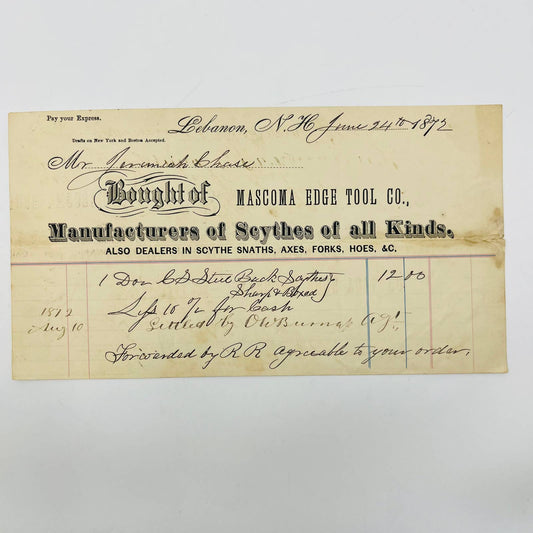 Pay your Express.
Drafts on New York and Boston Accepted.
Lebanon, N. H. June 24th 1872
Mr. Jeremiah Chase
Bought of MASCOMA EDGE TOOL CO.,
Manufacturers of Scythes of all Kinds,
ALSO DEALERS IN SCYTHE SNATHS, AXES, FORKS, HOES, &C.
1 Doz C S Steel Back Scythes 12 00
Sharp & Boxed
1872 Less 10 % for Cash
Aug 10 Settled by O W Burnap Agt.
Forwarded by R R agreeable to your order.